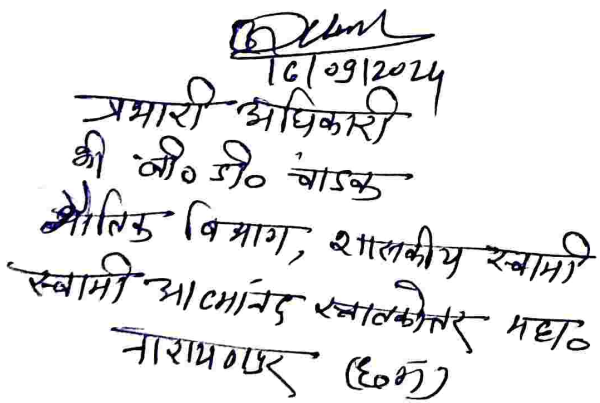 16/09/2024
प्रभारी अधिकारी
श्री बी० डी० चांडक
भौतिक विभाग, शासकीय स्वामी
स्वामी आत्मानंद स्नातकोत्तर महा०
नारायणपुर (छ०ग)